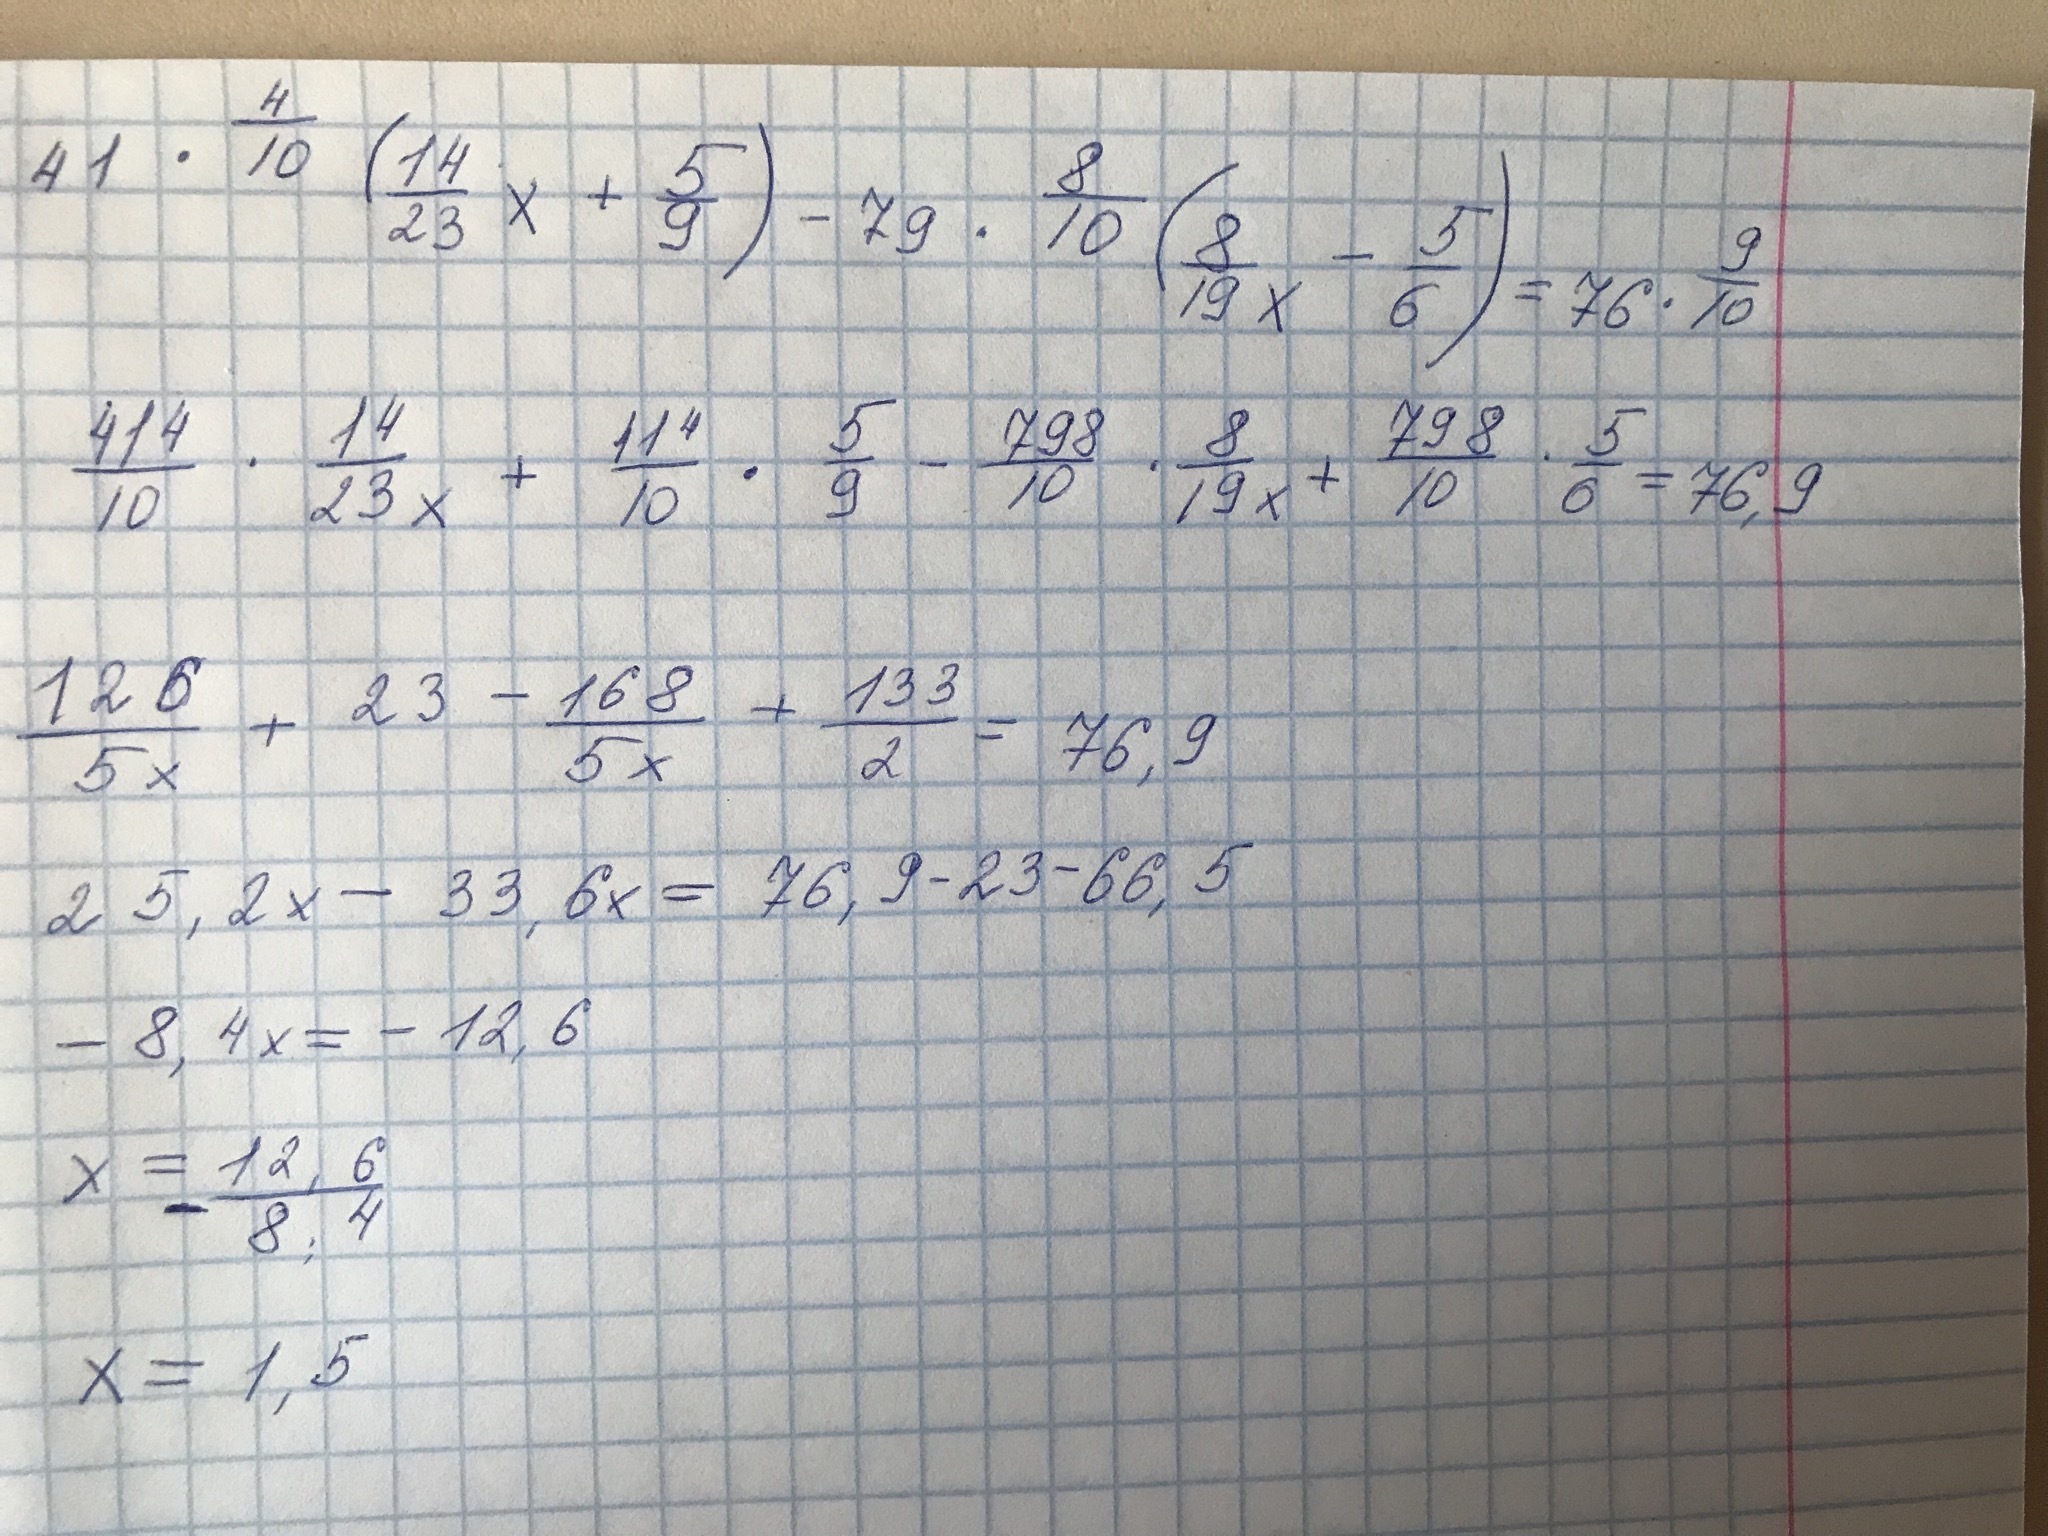 41 · 4/10 (14/23 x + 5/9) - 79 · 8/10 (8/19x - 5/6) = 76 · 9/10
414/10 · 14/23x + 114/10 · 5/9 - 798/10 · 8/19x + 798/10 · 5/6 = 76,9
126/5x + 23 - 168/5x + 133/2 = 76,9
25,2x - 33,6x = 76,9 - 23 - 66,5
- 8,4x = - 12,6
x = - 12,6/8,4
x = 1,5